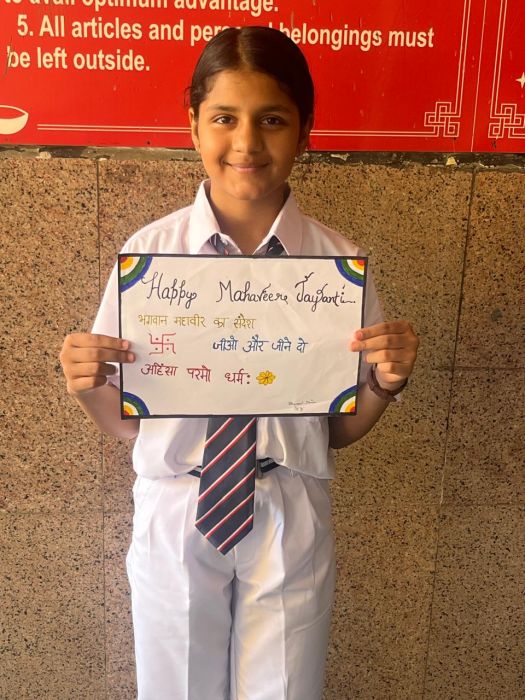 to avail optimum advantage.
5. All articles and personal belongings must
be left outside.
Happy Mahaveera Jayanti...
भगवान महावीर का संदेश
जीओ और जीने दो
अहिंसा परमो धर्म: